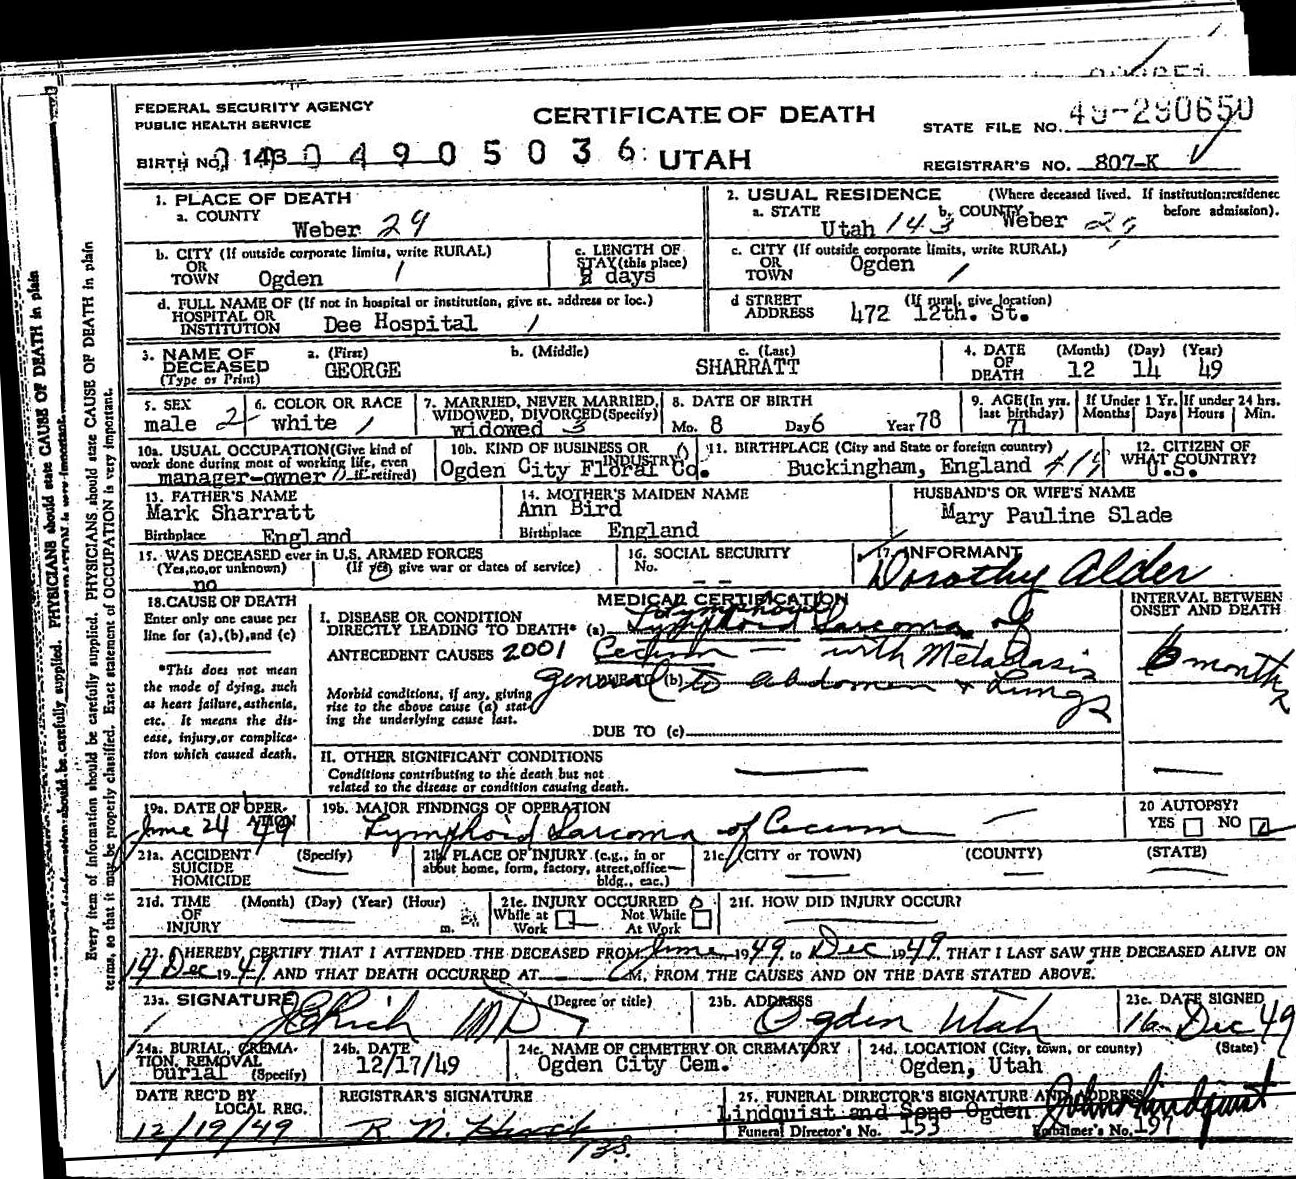 FEDERAL SECURITY AGENCY
PUBLIC HEALTH SERVICE
CERTIFICATE OF DEATH
STATE FILE NO. 49-290650
BIRTH NO. 143 0 4 9 0 5 0 3 6 UTAH
REGISTRAR'S NO. 807-K
1. PLACE OF DEATH
a. COUNTY
Weber 29
2. USUAL RESIDENCE (Where deceased lived. If institution:residence before admission).
a. STATE Utah 143 b. COUNTY Weber 29
b. CITY (If outside corporate limits, write RURAL)
OR
TOWN Ogden 1
c. LENGTH OF
STAY(this place)
days
c. CITY (If outside corporate limits, write RURAL)
OR
TOWN Ogden 1
d. FULL NAME OF (If not in hospital or institution, give st. address or loc.)
HOSPITAL OR
INSTITUTION Dee Hospital 1
d STREET (If rural, give location)
ADDRESS 472 12th. St.
3. NAME OF
DECEASED
(Type or Print)
a. (First)
GEORGE
b. (Middle)
c. (Last)
SHARRATT
4. DATE
OF
DEATH
(Month) (Day) (Year)
12 14 49
5. SEX
male 2
6. COLOR OR RACE
white 1
7. MARRIED, NEVER MARRIED,
WIDOWED, DIVORCED(Specify)
widowed 3
8. DATE OF BIRTH
Mo. 8 Day 6 Year 78
9. AGE(In yrs.
last birthday)
71
If Under 1 Yr.
Months Days
If under 24 hrs.
Hours Min.
10a. USUAL OCCUPATION(Give kind of
work done during most of working life, even
if retired)
manager-owner
10b. KIND OF BUSINESS OR
INDUSTRY
Ogden City Floral Co.
11. BIRTHPLACE (City and State or foreign country)
Buckingham, England
12. CITIZEN OF
WHAT COUNTRY?
U.S.
13. FATHER'S NAME
Mark Sharratt
Birthplace England
14. MOTHER'S MAIDEN NAME
Ann Bird
Birthplace England
HUSBAND'S OR WIFE'S NAME
Mary Pauline Slade
15. WAS DECEASED ever in U.S. ARMED FORCES
(Yes,no,or unknown) (If yes, give war or dates of service)
no
16. SOCIAL SECURITY
No. - -
17. INFORMANT
Dorothy Alder
18. CAUSE OF DEATH
Enter only one cause per
line for (a),(b),and (c)
*This does not mean
the mode of dying, such
as heart failure,asthenia,
etc. It means the dis-
ease, injury,or complica-
tion which caused death.
MEDICAL CERTIFICATION
INTERVAL BETWEEN
ONSET AND DEATH
I. DISEASE OR CONDITION
DIRECTLY LEADING TO DEATH* (a) Lymphoid Sarcoma of
ANTECEDENT CAUSES 2001 Cecum — with Metastasis
6 months
DUE TO (b) general to abdomen + Lungs
Morbid conditions, if any, giving
rise to the above cause (a) stat-
ing the underlying cause last.
DUE TO (c)
II. OTHER SIGNIFICANT CONDITIONS
Conditions contributing to the death but not
related to the disease or condition causing death.
19a. DATE OF OPER-
ATION
June 24 49
19b. MAJOR FINDINGS OF OPERATION
Lymphoid Sarcoma of Cecum
20 AUTOPSY?
YES NO
21a. ACCIDENT (Specify)
SUICIDE
HOMICIDE
21b. PLACE OF INJURY (e.g., in or
about home, form, factory, street,office
bldg., eac.)
21c. (CITY or TOWN) (COUNTY) (STATE)
21d. TIME (Month) (Day) (Year) (Hour)
OF
INJURY m.
21e. INJURY OCCURRED
While at Work Not While At Work
21f. HOW DID INJURY OCCUR?
22. I HEREBY CERTIFY THAT I ATTENDED THE DECEASED FROM June 1949 to Dec 1949, THAT I LAST SAW THE DECEASED ALIVE ON
14 Dec 1949 AND THAT DEATH OCCURRED AT M, FROM THE CAUSES AND ON THE DATE STATED ABOVE.
23a. SIGNATURE (Degree or title)
Rich MD
23b. ADDRESS
Ogden Utah
23c. DATE SIGNED
16 Dec 49
24a. BURIAL, CREMA-
TION, REMOVAL
burial (Specify)
24b. DATE
12/17/49
24c. NAME OF CEMETERY OR CREMATORY
Ogden City Cem.
24d. LOCATION (City, town, or county) (State)
Ogden, Utah
DATE REC'D BY
LOCAL REG.
12/19/49
REGISTRAR'S SIGNATURE
R. N.
25. FUNERAL DIRECTOR'S SIGNATURE AND ADDRESS
Lindquist and Sons Ogden John Lindquist
Funeral Director's No. 153 Embalmer's No. 197
Every item of information should be carefully supplied. PHYSICIANS should state CAUSE OF DEATH in plain
terms, so that it may be properly classified. Exact statement of OCCUPATION is very important.
PHYSICIANS should state CAUSE OF DEATH in plain